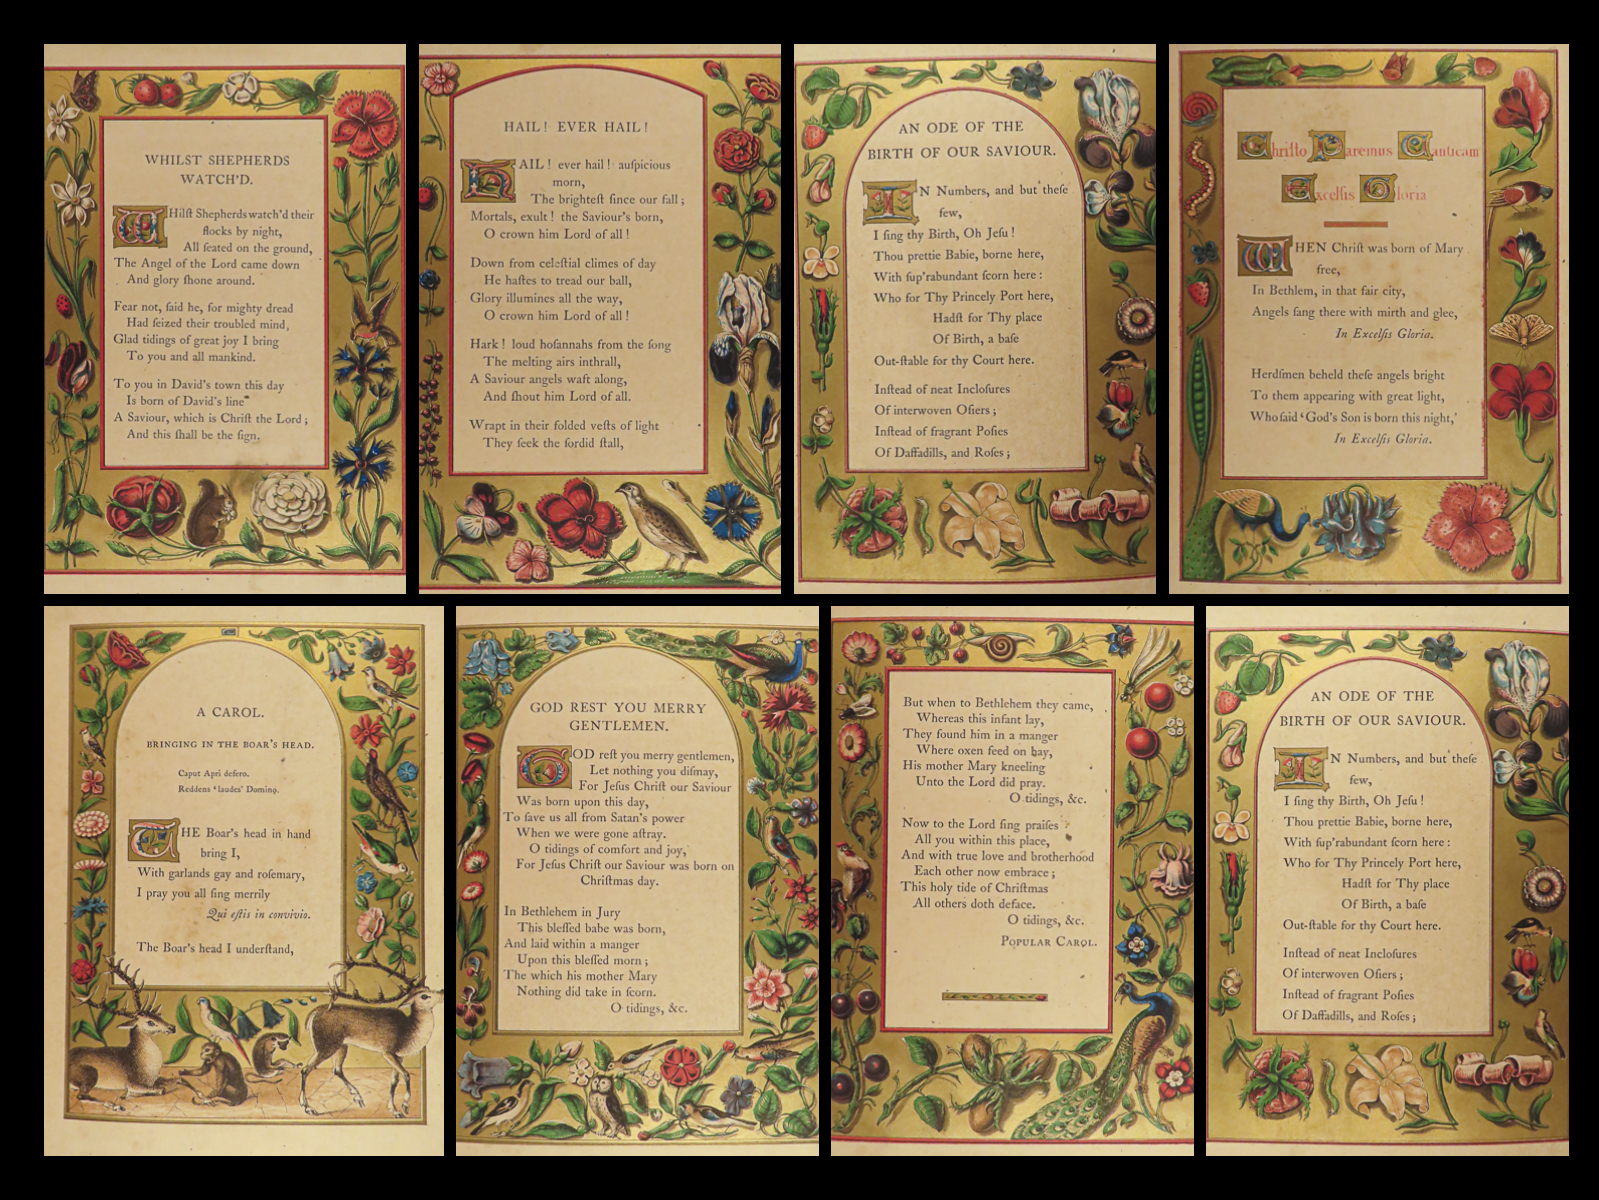 WHILST SHEPHERDS
WATCH'D.
WHilſt Shepherds watch'd their
flocks by night,
All ſeated on the ground,
The Angel of the Lord came down
And glory ſhone around.
Fear not, ſaid he, for mighty dread
Had ſeized their troubled mind,
Glad tidings of great joy I bring
To you and all mankind.
To you in David's town this day
Is born of David's line
A Saviour, which is Chriſt the Lord;
And this ſhall be the ſign.
HAIL! EVER HAIL!
HAIL! ever hail! auſpicious
morn,
The brighteſt ſince our fall;
Mortals, exult! the Saviour's born,
O crown him Lord of all!
Down from celeſtial climes of day
He haſtes to tread our ball,
Glory illumines all the way,
O crown him Lord of all!
Hark! loud hoſannahs from the ſong
The melting airs inthrall,
A Saviour angels waft along,
And ſhout him Lord of all.
Wrapt in their folded veſts of light
They ſeek the ſordid ſtall,
AN ODE OF THE
BIRTH OF OUR SAVIOUR.
IN Numbers, and but theſe
few,
I ſing thy Birth, Oh Jeſu!
Thou prettie Babie, borne here,
With ſup'rabundant ſcorn here:
Who for Thy Princely Port here,
Hadſt for Thy place
Of Birth, a baſe
Out-ſtable for thy Court here.
Inſtead of neat Incloſures
Of interwoven Oſiers;
Inſtead of fragrant Poſies
Of Daffadills, and Roſes;
Chriſto Paremus Canticam
Excelſis Gloria
WHEN Chriſt was born of Mary
free,
In Bethlem, in that fair city,
Angels ſang there with mirth and glee,
In Excelſis Gloria.
Herdſmen beheld theſe angels bright
To them appearing with great light,
Who ſaid 'God's Son is born this night,'
In Excelſis Gloria.
A CAROL.
BRINGING IN THE BOAR'S HEAD.
Caput Apri defero.
Reddens 'laudes' Domino.
THE Boar's head in hand
bring I,
With garlands gay and roſemary,
I pray you all ſing merrily
Qui eſtis in convivio.
The Boar's head I underſtand,
GOD REST YOU MERRY
GENTLEMEN.
GOD reſt you merry gentlemen,
Let nothing you diſmay,
For Jeſus Chriſt our Saviour
Was born upon this day,
To ſave us all from Satan's power
When we were gone aſtray.
O tidings of comfort and joy,
For Jeſus Chriſt our Saviour was born on
Chriſtmas day.
In Bethlehem in Jury
This bleſſed babe was born,
And laid within a manger
Upon this bleſſed morn;
The which his mother Mary
Nothing did take in ſcorn.
O tidings, &c.
But when to Bethlehem they came,
Whereas this infant lay,
They found him in a manger
Where oxen feed on hay,
His mother Mary kneeling
Unto the Lord did pray.
O tidings, &c.
Now to the Lord ſing praiſes
All you within this place,
And with true love and brotherhood
Each other now embrace;
This holy tide of Chriſtmas
All others doth deface.
O tidings, &c.
POPULAR CAROL.
AN ODE OF THE
BIRTH OF OUR SAVIOUR.
IN Numbers, and but theſe
few,
I ſing thy Birth, Oh Jeſu!
Thou prettie Babie, borne here,
With ſup'rabundant ſcorn here:
Who for Thy Princely Port here,
Hadſt for Thy place
Of Birth, a baſe
Out-ſtable for thy Court here.
Inſtead of neat Incloſures
Of interwoven Oſiers;
Inſtead of fragrant Poſies
Of Daffadills, and Roſes;